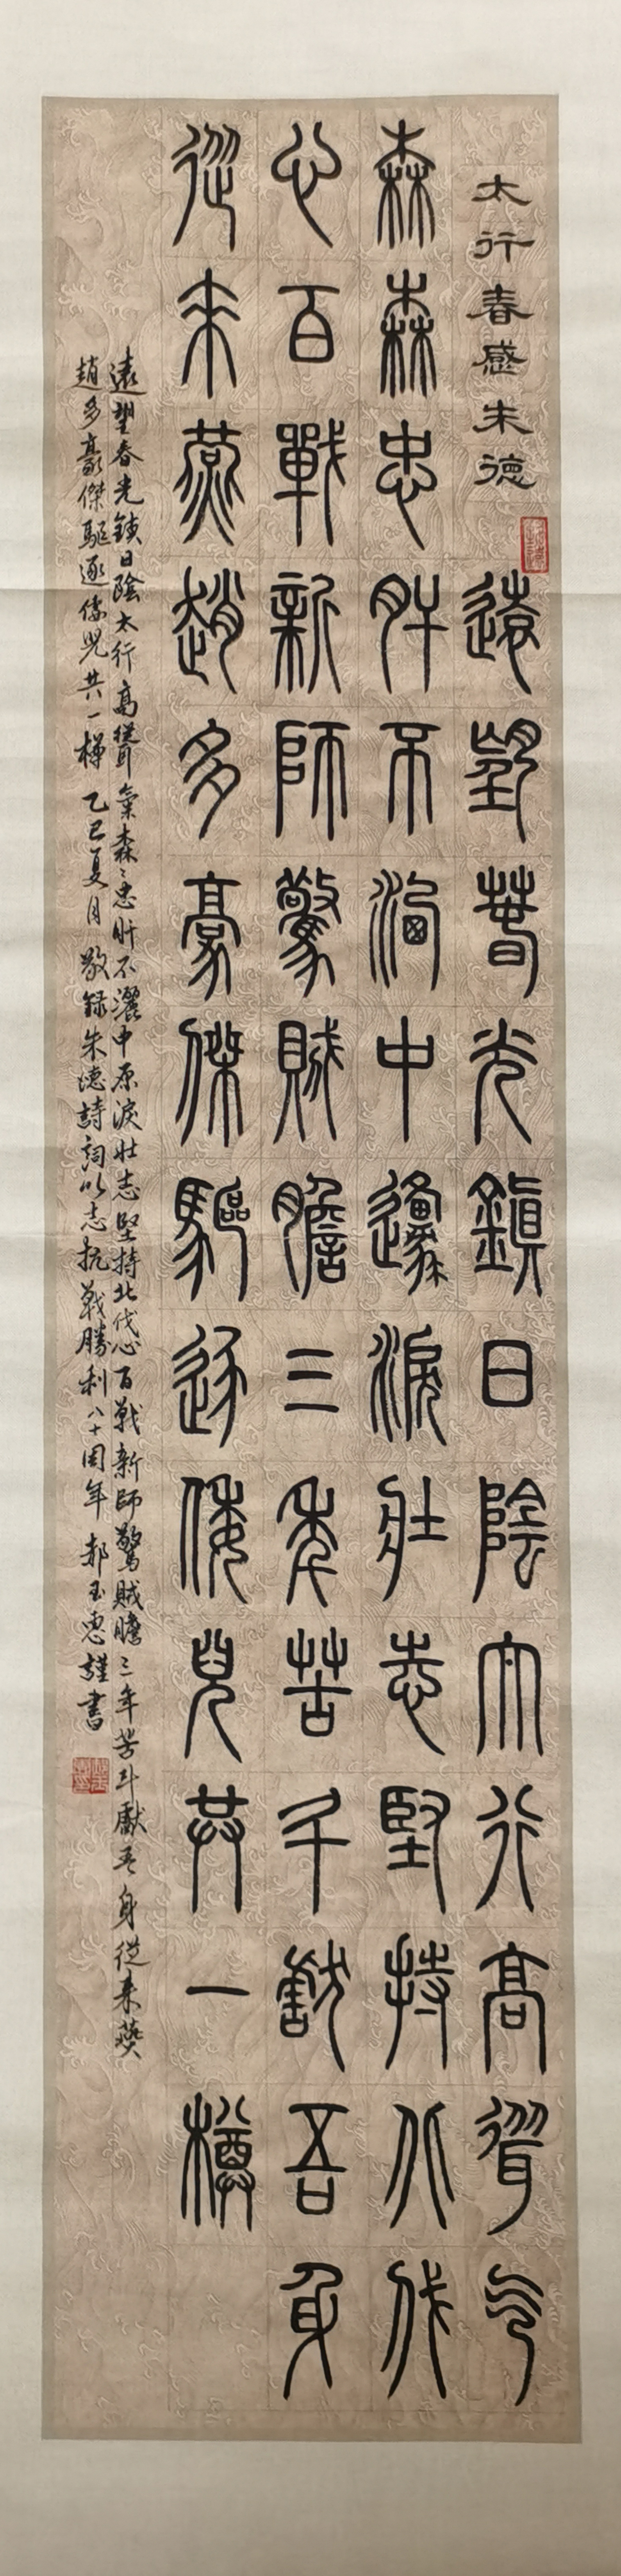 太行春感朱德
遠望春光鎮日陰太行高聳气
森森忠肝不洒中邍淚壯志堅持北伐
心百戰新師驚賊膽三年苦斗獻吾身
從來燕趙多豪傑驅逐倭兒共一樽
遠望春光鎮日陰太行高聳氣森〻忠肝不灑中原淚壯志堅持北伐心百戰新師驚賊膽三年苦斗獻吾身從來燕
趙多豪傑驅逐倭児共一樽 乙巳夏月 敬録朱德詩詞以志抗戰勝利八十周年 郝玉惠謹書